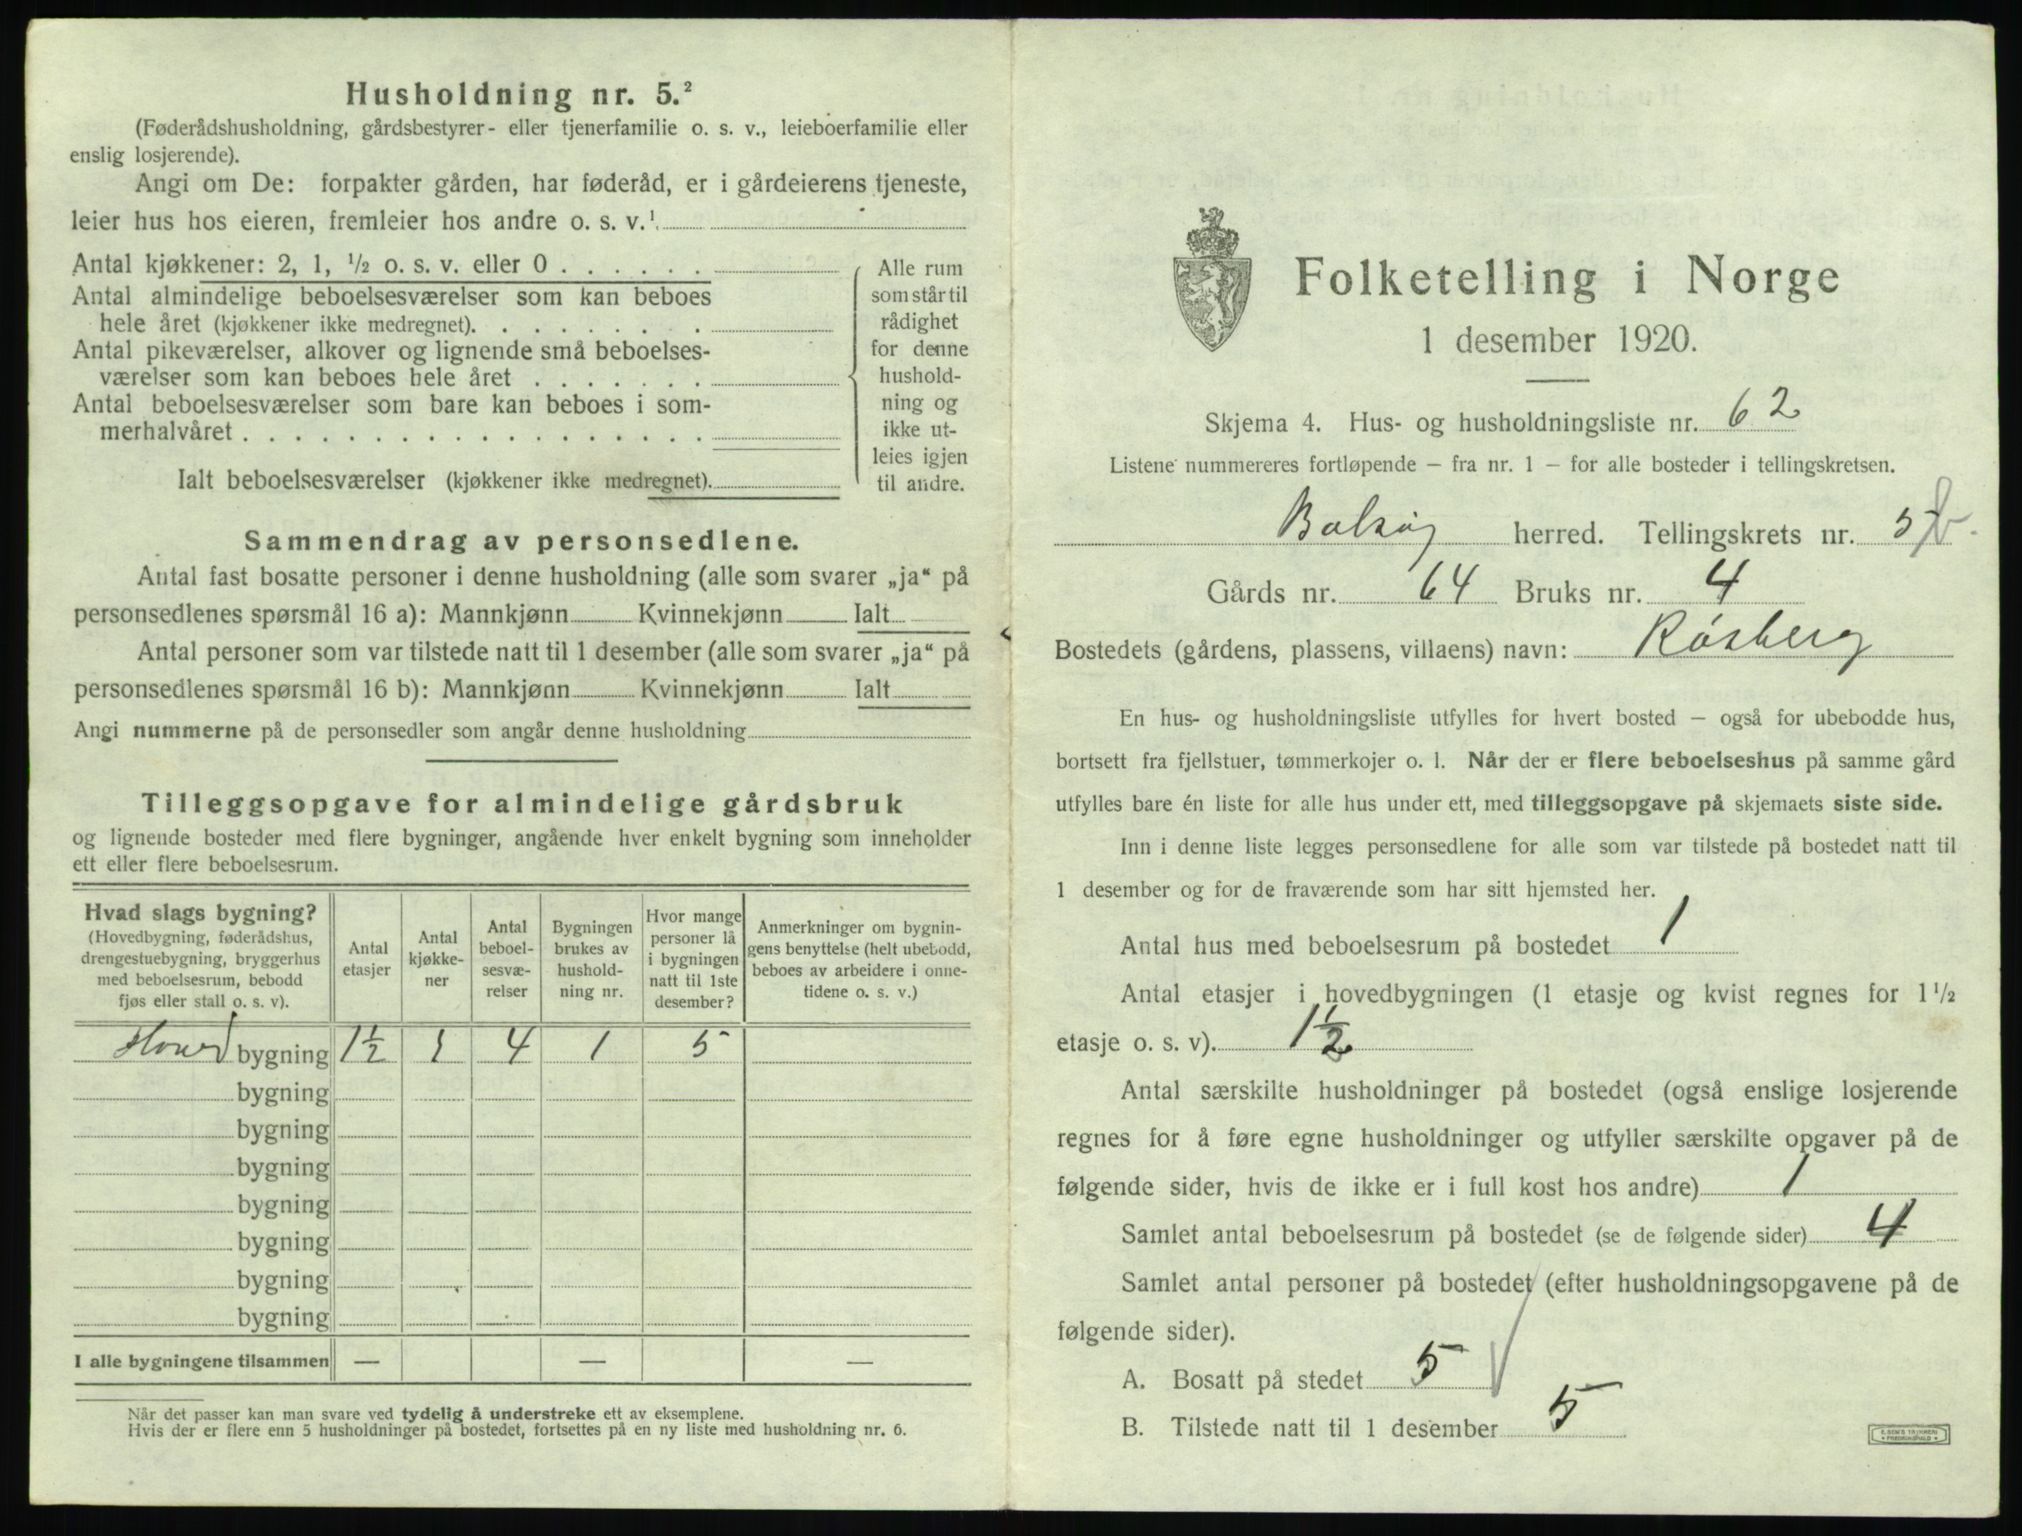 Husholdning nr. 5.²
(Føderådshusholdning, gårdsbestyrer- eller tjenerfamilie o. s. v., leieboerfamilie eller
enslig losjerende).
Angi om De: forpakter gården, har føderåd, er i gårdeierens tjeneste,
leier hus hos eieren, fremleier hos andre o. s. v.¹
Antal kjøkkener: 2, 1, ½ o. s. v. eller 0 . . . . . .
Antal almindelige beboelsesværelser som kan beboes
hele året (kjøkkener ikke medregnet). . . . . . . . .
Antal pikeværelser, alkover og lignende små beboelses-
værelser som kan beboes hele året . . . . . . .
Antal beboelsesværelser som bare kan beboes i som-
merhalvåret . . . . . . . . . . . . . . . . . .
Ialt beboelsesværelser (kjøkkener ikke medregnet).
Alle rum
som står til
rådighet
for denne
hushold-
ning og
ikke ut-
leies igjen
til andre.
Sammendrag av personsedlene.
Antal fast bosatte personer i denne husholdning (alle som svarer „ja“ på
personsedlenes spørsmål 16 a): Mannkjønn Kvinnekjønn Ialt
Antal personer som var tilstede natt til 1 desember (alle som svarer „ja“ på
personsedlenes spørsmål 16 b): Mannkjønn Kvinnekjønn Ialt
Angi nummerne på de personsedler som angår denne husholdning
Tilleggsopgave for almindelige gårdsbruk
og lignende bosteder med flere bygninger, angående hver enkelt bygning som inneholder
ett eller flere beboelsesrum.
Hvad slags bygning?
(Hovedbygning, føderådshus,
drengestuebygning, bryggerhus
med beboelsesrum, bebodd
fjøs eller stall o. s. v).
Antal
etasjer
Antal
kjøkke-
ner
Antal
beboel-
sesvæ-
relser
Bygningen
brukes av
hushold-
ning nr.
Hvor mange
personer lå
i bygningen
natt til 1ste
desember?
Anmerkninger om bygnin-
gens benyttelse (helt ubebodd,
beboes av arbeidere i onne-
tidene o. s. v.)
Hoved bygning 1½ 1 4 1 5
bygning
bygning
bygning
bygning
bygning
bygning
bygning
I alle bygningene tilsammen — — —
Når det passer kan man svare ved tydelig å understreke ett av eksemplene.
Hvis der er flere enn 5 husholdninger på bostedet, fortsettes på en ny liste med husholdning nr. 6.
Folketelling i Norge
1 desember 1920.
Skjema 4. Hus- og husholdningsliste nr. 62
Listene nummereres fortløpende — fra nr. 1 — for alle bosteder i tellingskretsen.
Bolsøy herred. Tellingskrets nr. 5
Gårds nr. 64 Bruks nr. 4
Bostedets (gårdens, plassens, villaens) navn: Røsberg
En hus- og husholdningsliste utfylles for hvert bosted — også for ubebodde hus,
bortsett fra fjellstuer, tømmerkojer o. l. Når der er flere beboelseshus på samme gård
utfylles bare én liste for alle hus under ett, med tilleggsopgave på skjemaets siste side.
Inn i denne liste legges personsedlene for alle som var tilstede på bostedet natt til
1 desember og for de fraværende som har sitt hjemsted her.
Antal hus med beboelsesrum på bostedet 1
Antal etasjer i hovedbygningen (1 etasje og kvist regnes for 1½
etasje o. s. v). 1½
Antal særskilte husholdninger på bostedet (også enslige losjerende
regnes for å føre egne husholdninger og utfyller særskilte opgaver på de
følgende sider, hvis de ikke er i full kost hos andre) 1
Samlet antal beboelsesrum på bostedet (se de følgende sider) 4
Samlet antal personer på bostedet (efter husholdningsopgavene på de
følgende sider).
A. Bosatt på stedet 5
B. Tilstede natt til 1 desember 5